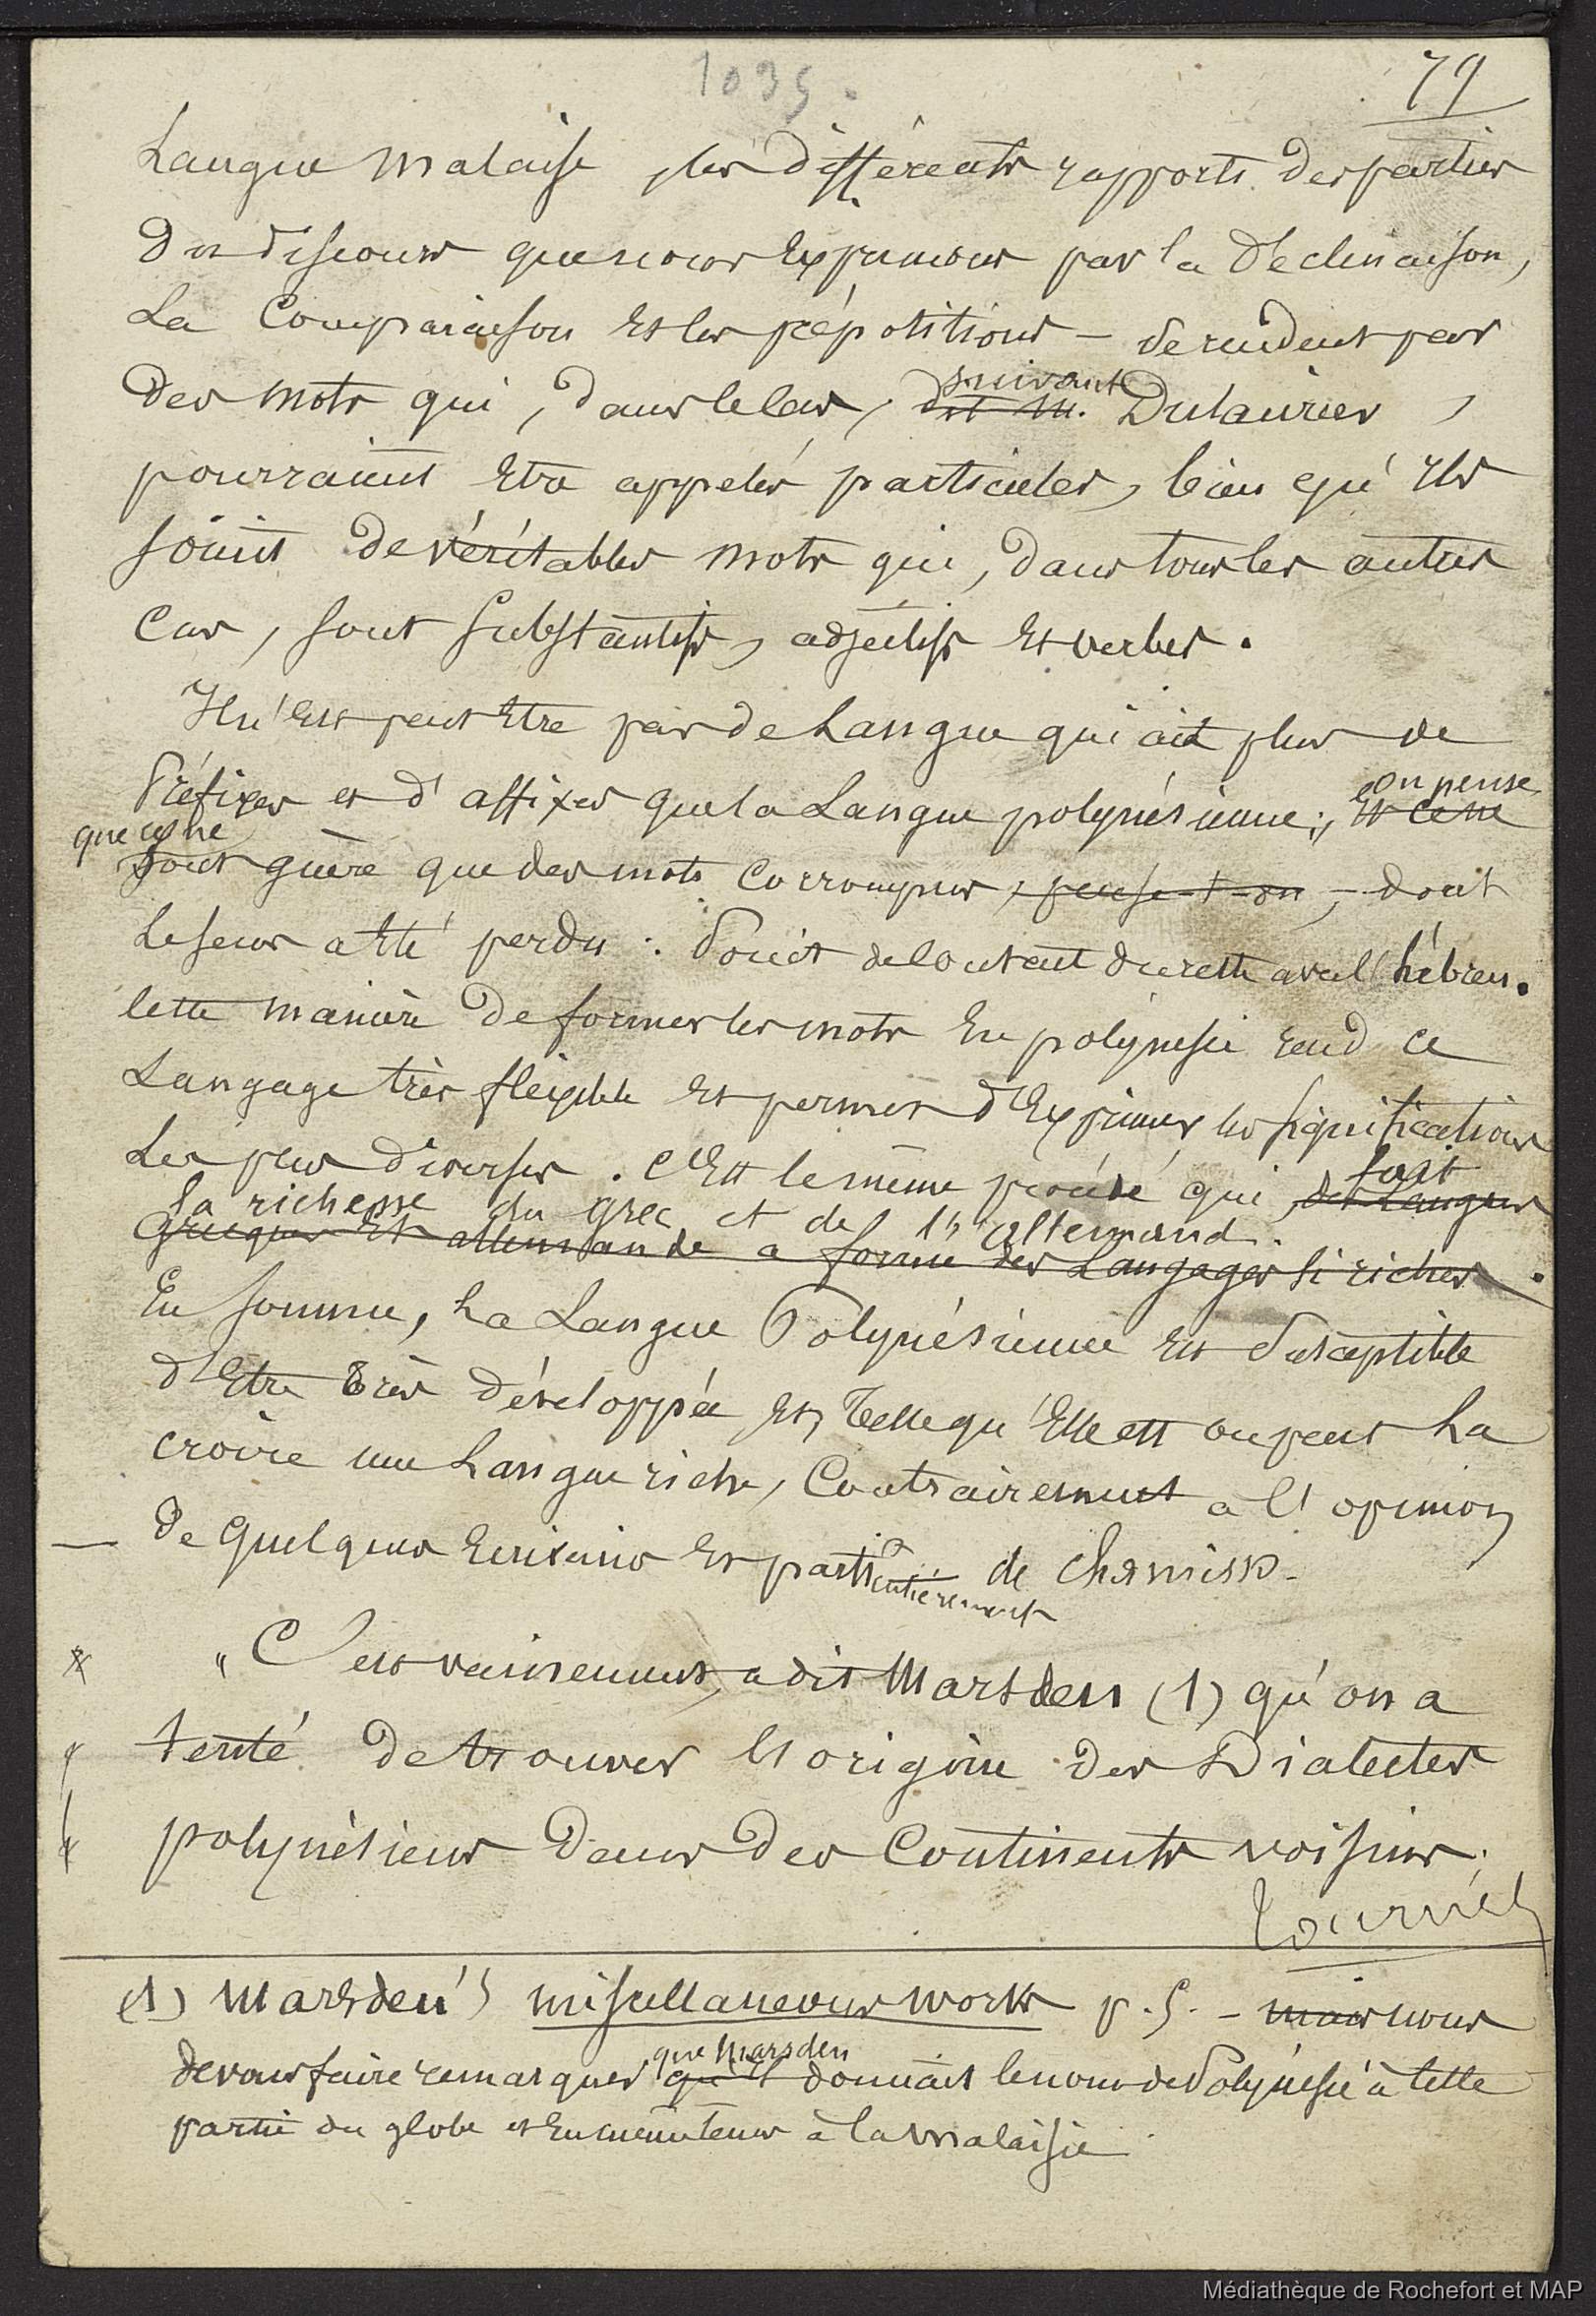 1035.
79
Langue malaise, les différents rapports des parties
du discours que nous exprimons par la déclinaison,
la comparaison et les prépositions – se rendent par
des mots qui, dans le cas, dit M. suivant Dulaurier,
pourraient être appelés particules, bien qu'ils
soient de véritables mots qui, dans tous les autres
cas, sont substantifs, adjectifs et verbes.
Il n'est peut être pas de Langue qui ait plus de
Préfixes et d'affixes que la Langue polynésienne; et ce ne on pense
que ce ne
sont guère que des mots corrompus, pense-t-on, – dont
le sens a été perdu :
du reste avec l'hébreu.
Cette manière de former les mots en polynésie rend ce
Langage très flexible et permet d'exprimer les significations
les plus diverses. C'est le même procédé qui, des Langues fait
la richesse du grec et de l'allemand.
grecque et allemande a formé des Langages si riches.
En somme, la Langue Polynésienne est susceptible
d'être très développée et, telle qu'elle est on peut la
croire une Langue riche, contrairement à l'opinion
– de quelques écrivains et particulièrement de Chamisso.
"C'est vainement, a dit Marsden (1) qu'on a
tenté de trouver l'origine des Dialectes
polynésiens dans des Continents voisins;
(1) Marsden's miscellaneous works p. 5. – mais nous
devons faire remarquer qu'il que Marsden donnait le nom de Polynésie à cette
partie du globe et en même temps à la malaisie.
Médiathèque de Rochefort et MAP